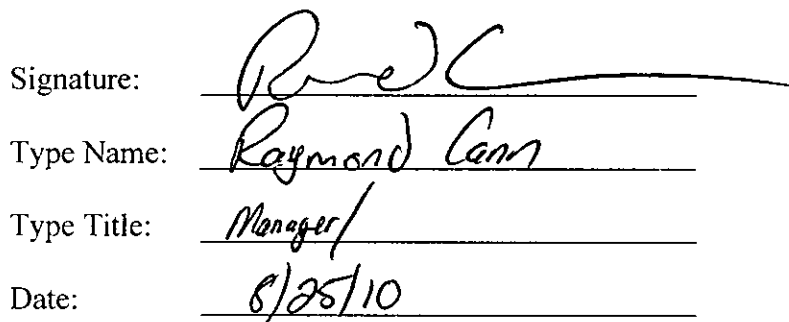 Signature:
Type Name: Raymond Cann
Type Title: Manager/
Date: 8/25/10